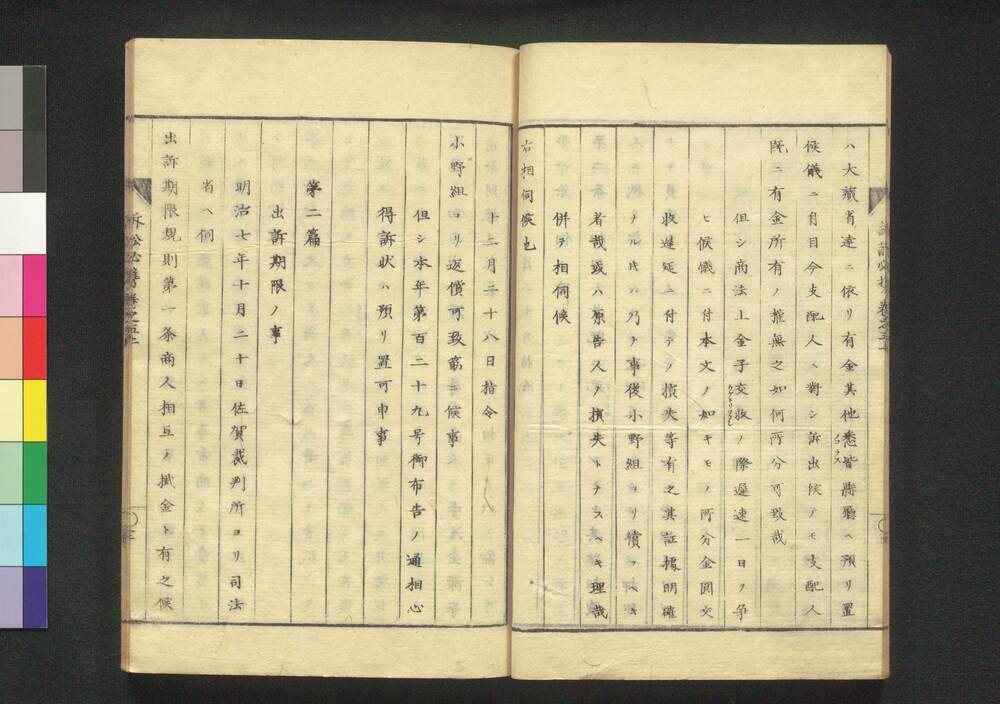 ハ大蔵省達ニ依リ有金其他悉皆縣廳ヘ預リ置
候儀ニ付目今支配人ヘ對シ訴出候テモ支配人
既ニ有金所有ノ権無之如何所分可致哉
但シ商法上金子交收ノ際遅速一日ヲ争
ヒ候儀ニ付本文ノ如キモノ所分金圓交
收遅延ニ付テノ損失等有之其証據明確
ナル片ハ乃チ事後小野組ヨリ償フヘキ
者哉或ハ原告人ノ損失トナスヘキ理哉
併テ相伺候
右相伺候也
十二月二十八日指令
小野組ヨリ返償可致筋ニ候事
但シ本年第百二十九号御布告ノ通相心
得訴状ハ預リ置可申事
第二篇
出訴期限ノ事
明治七年十月二十日佐賀裁判所ヨリ司法
省ヘ伺
出訴期限規則第一条商人相互ノ掛金ト有之候